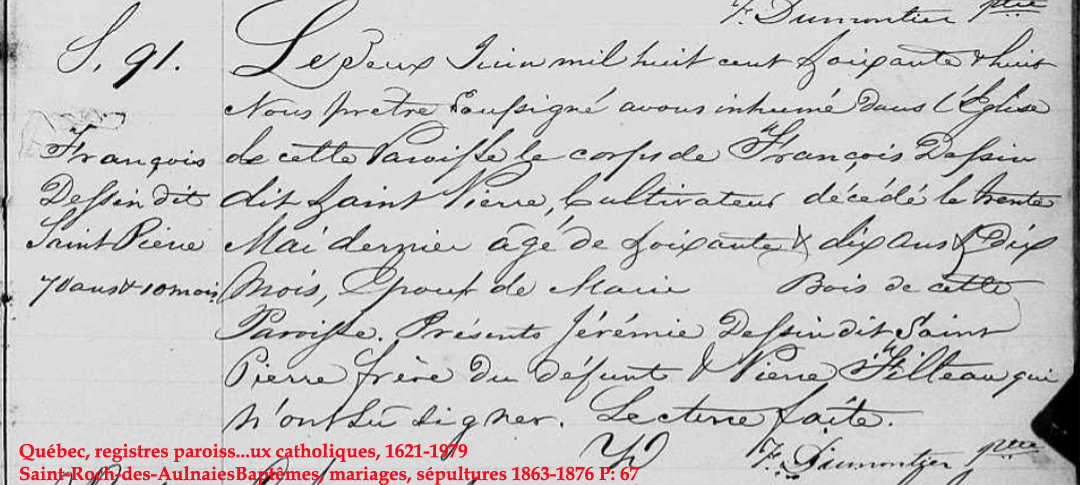 F. Dumontier ptre
S. 91.
Le deux Juin mil huit cent soixante & huit
Nous prêtre soussigné avons inhumé dans l'Église
François
de cette Paroisse le corps de François Dessin
Dessin dit
dit Saint Pierre, Cultivateur décédé le trente
Saint Pierre
Mai dernier âgé de soixante & dix ans & dix
70 ans & 10 mois
Mois, Epoux de Marie Bois de cette
Paroisse. Présents Jérémie Dessin dit Saint
Pierre frère du défunt & Pierre Filteau qui
n'ont su signer. Lecture faite.
F. Dumontier ptre
Québec, registres paroiss...ux catholiques, 1621-1979
Saint-Roch-des-AulnaiesBaptêmes, mariages, sépultures 1863-1876 P: 67